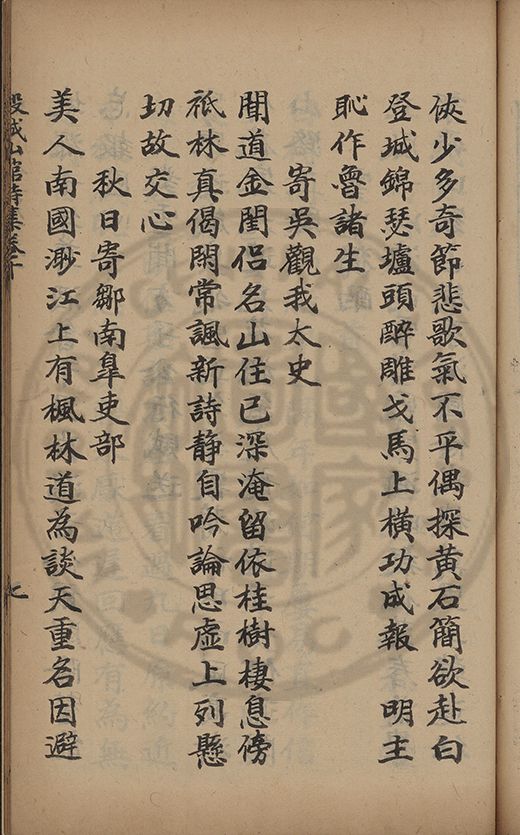 俠少多奇節悲歌氣不平偶探黄石簡欲赴白
登城錦瑟壚頭醉雕戈馬上橫功成報　明主
恥作魯諸生
寄吳觀我太史
聞道金閨侣名山住已深淹留依桂樹棲息傍
祇林真偈閑常諷新詩静自吟論思虚上列懸
切故交心
秋日寄鄒南臯吏部
美人南國渺江上有楓林道為談天重名因避
榖城山館詩集卷十
七